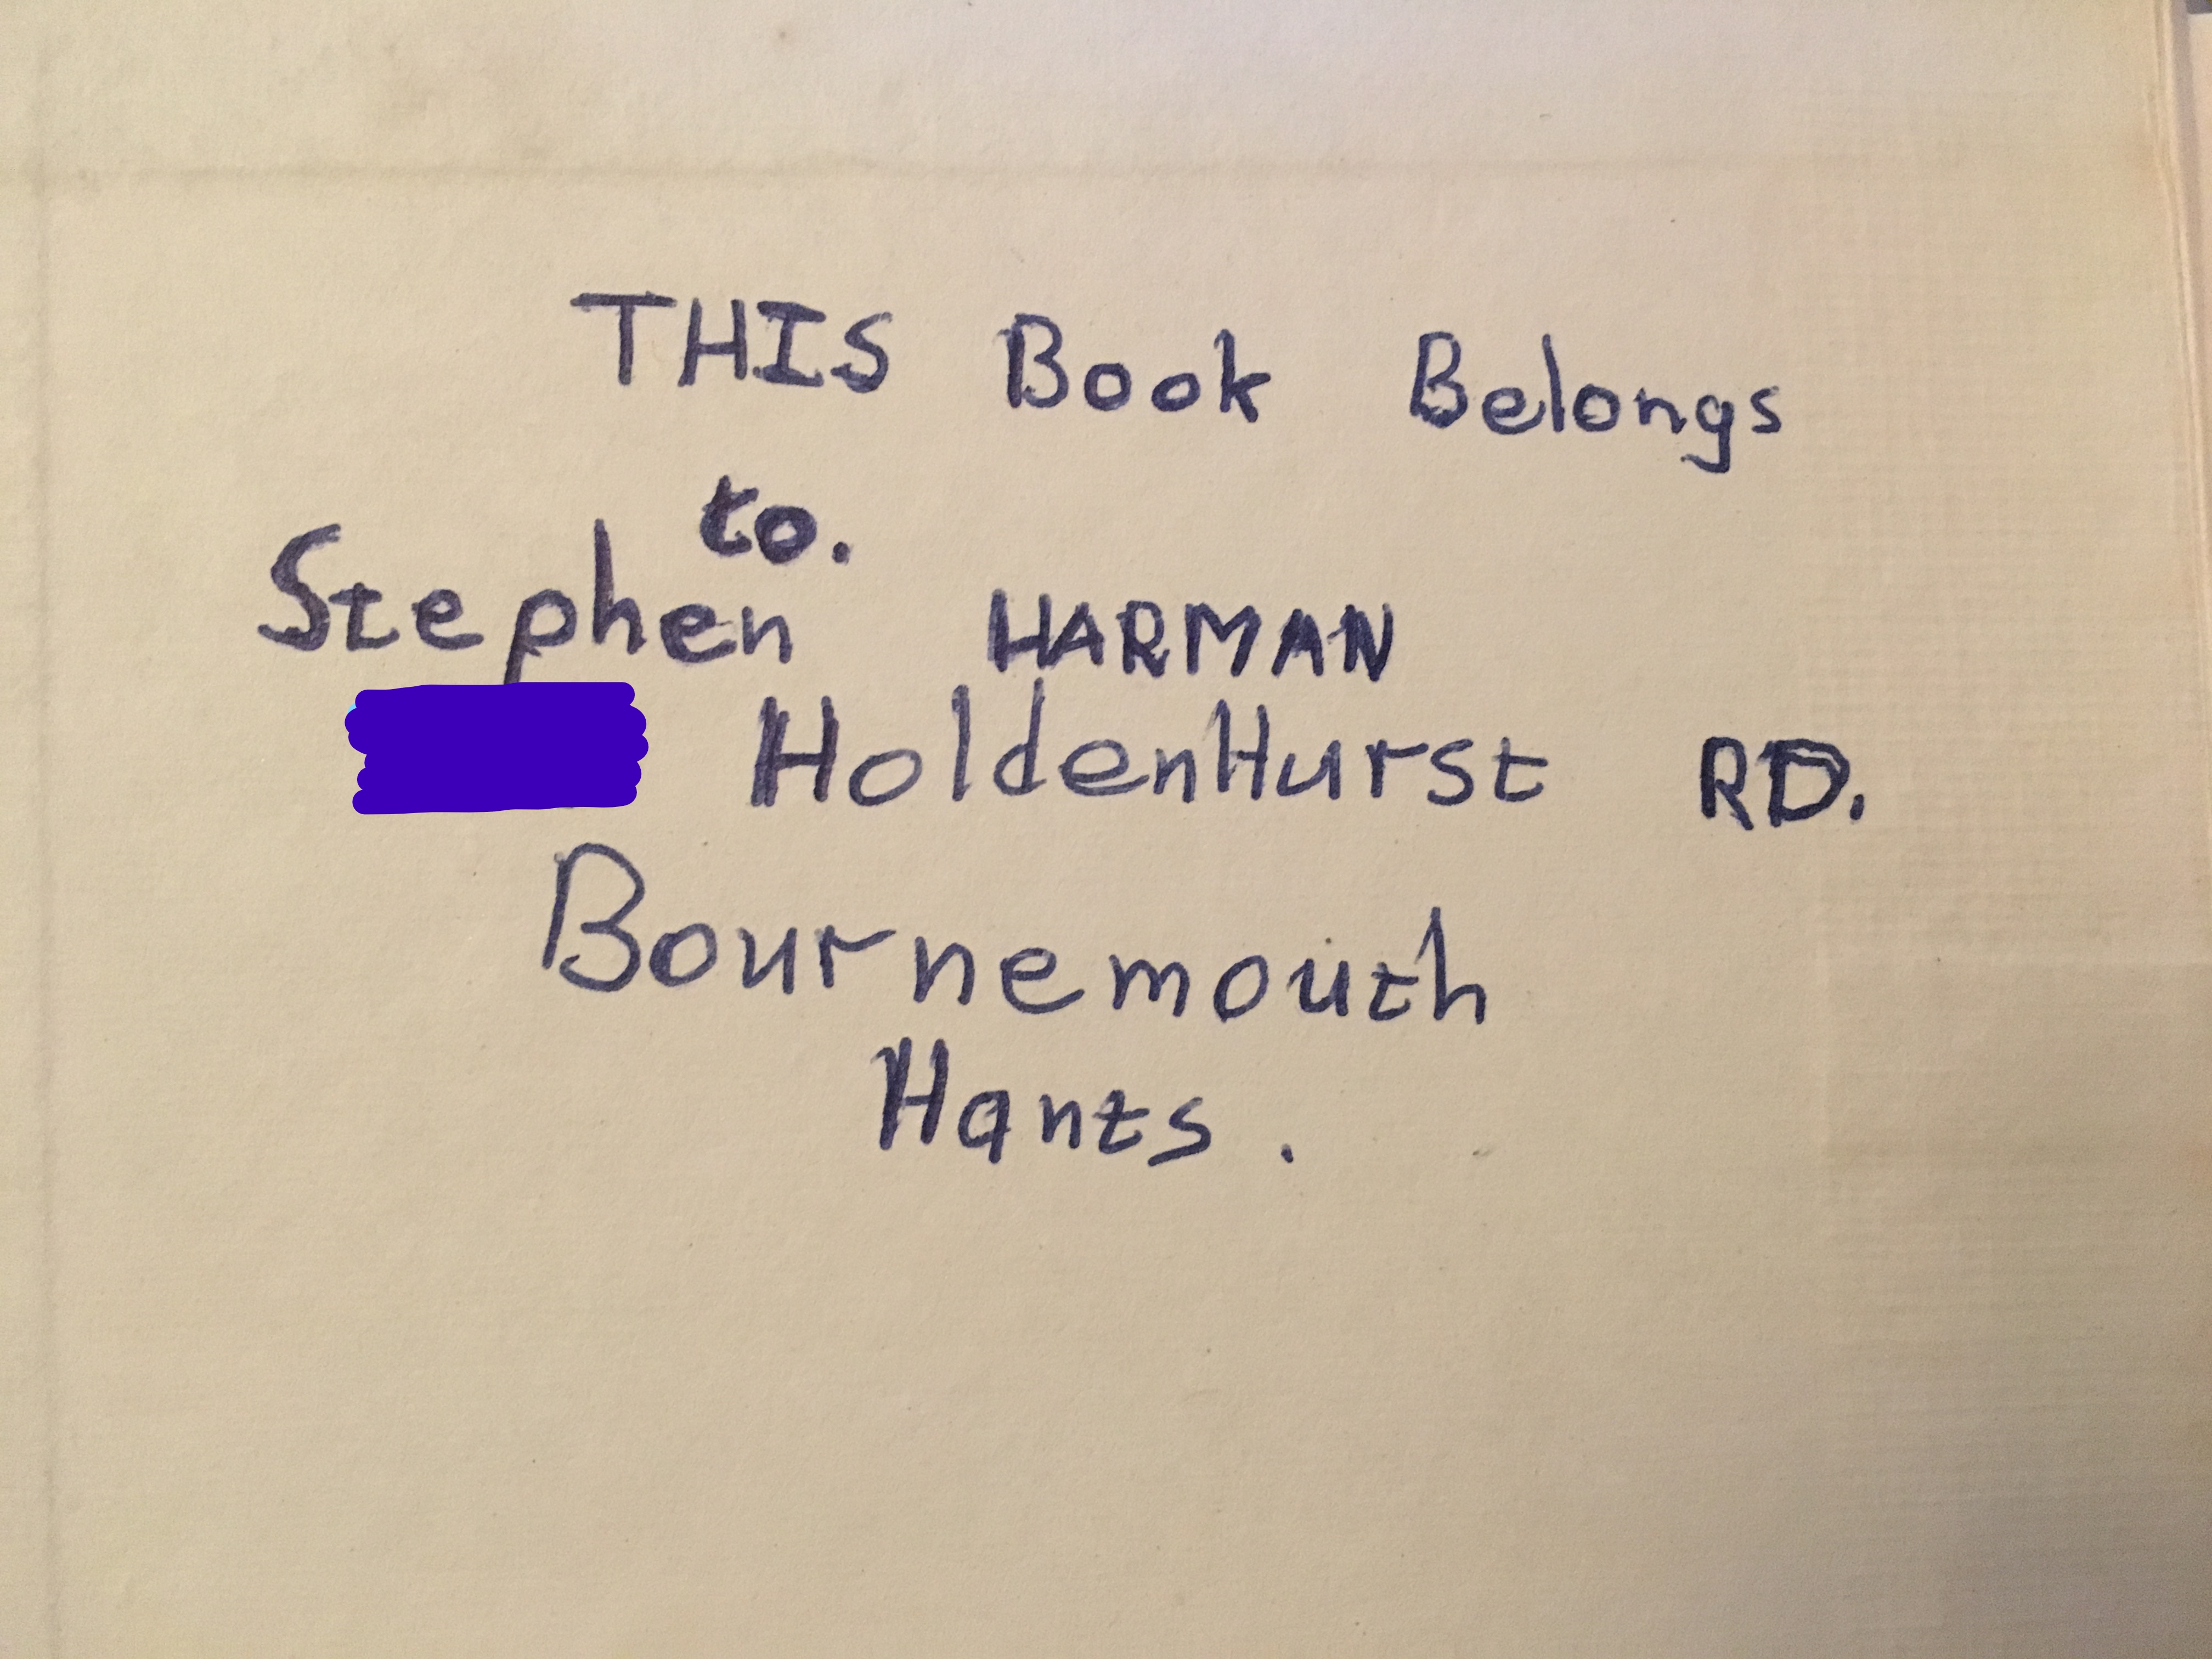 THIS Book Belongs
to.
Stephen HARMAN
HoldenHurst RD.
Bournemouth
Hants.